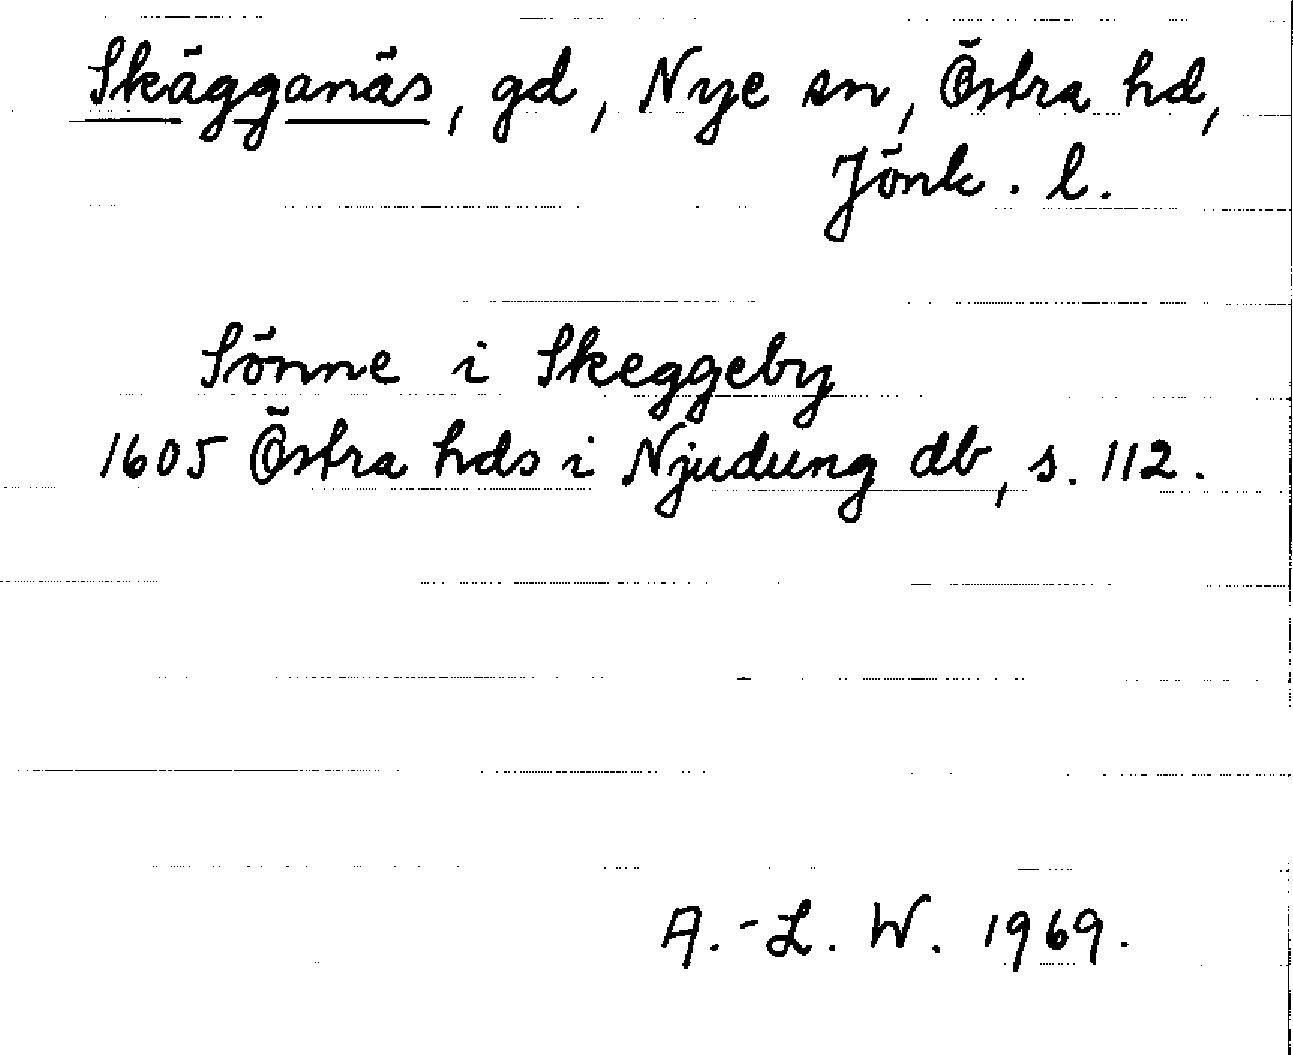 Skägganäs, gd, Nye sn, Östra hd,
Jönk. l.
Sönne i Skeggeby
1605 Östra hds i Njudung db, s. 112.
A.-L. W. 1969.